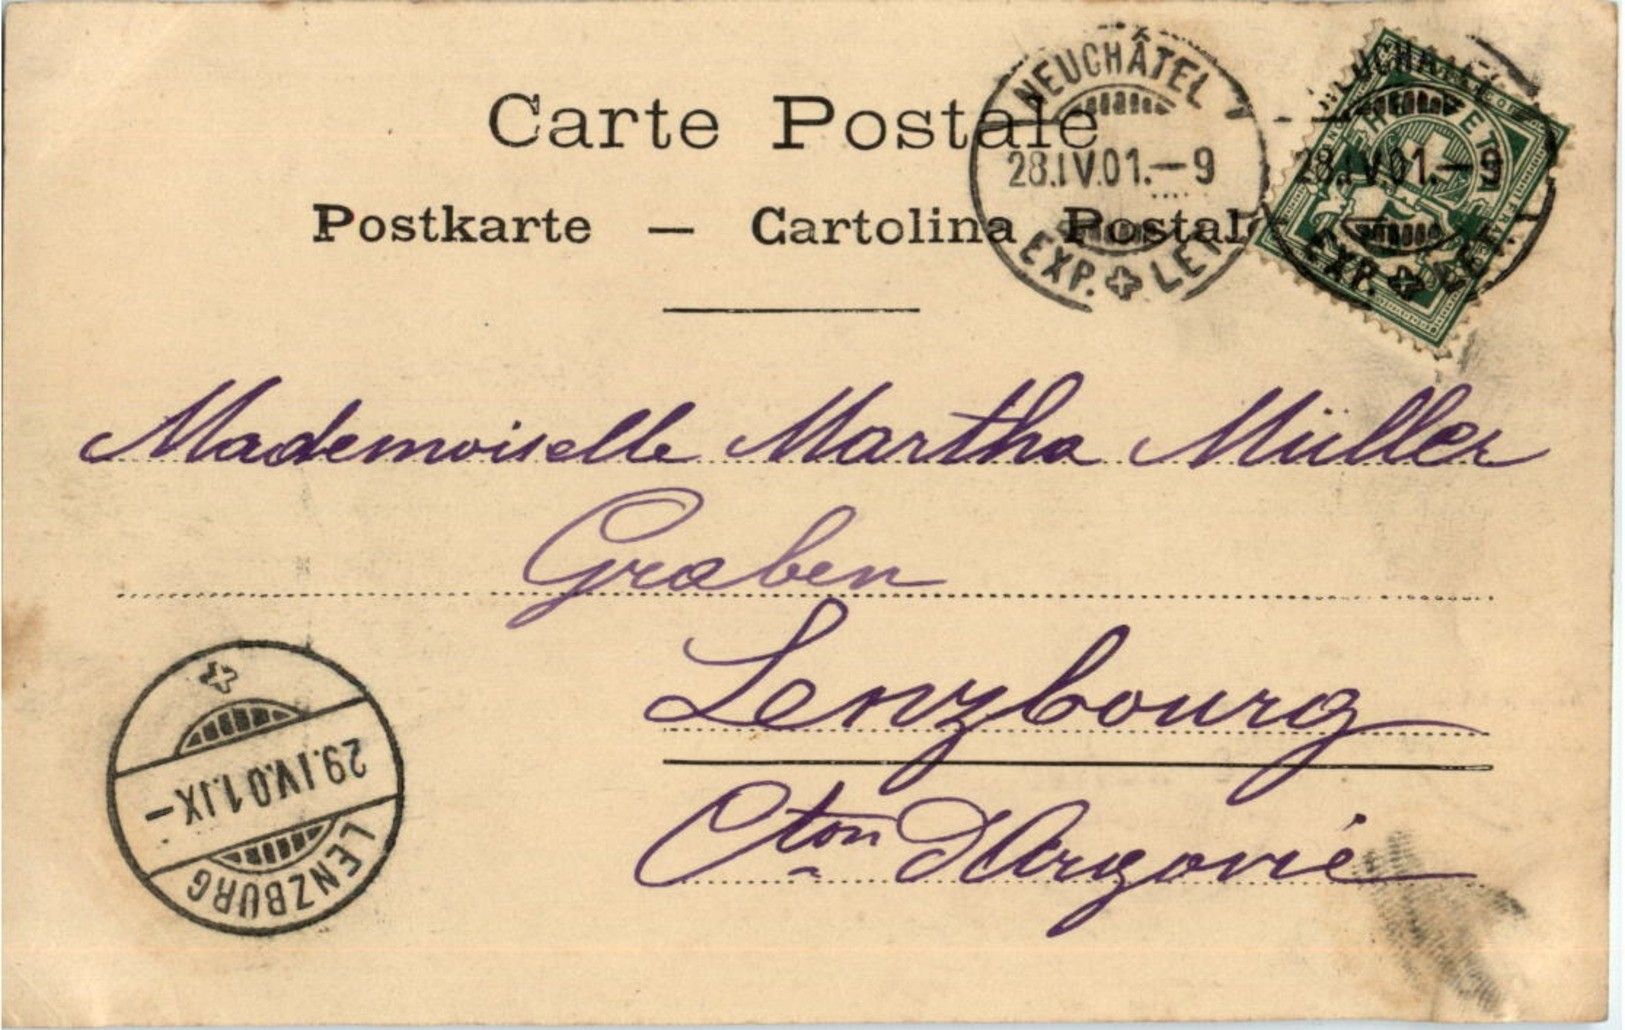 NEUCHÂTEL 1
Carte Postale
28.IV.01.–9
28.IV.01.–9
Postkarte — Cartolina Postale
EXP. LET.
EXP. LET.
HELVETIA
Mademoiselle Martha Müller
Graben
Lenzbourg
Cton d'Argovie
29.IV.01.IX–
LENZBURG